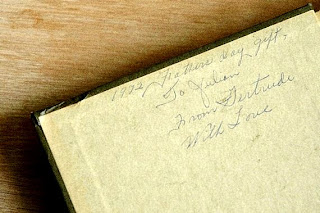 1972 Fathers day gift,
To Julian
From Gertrude
With Love